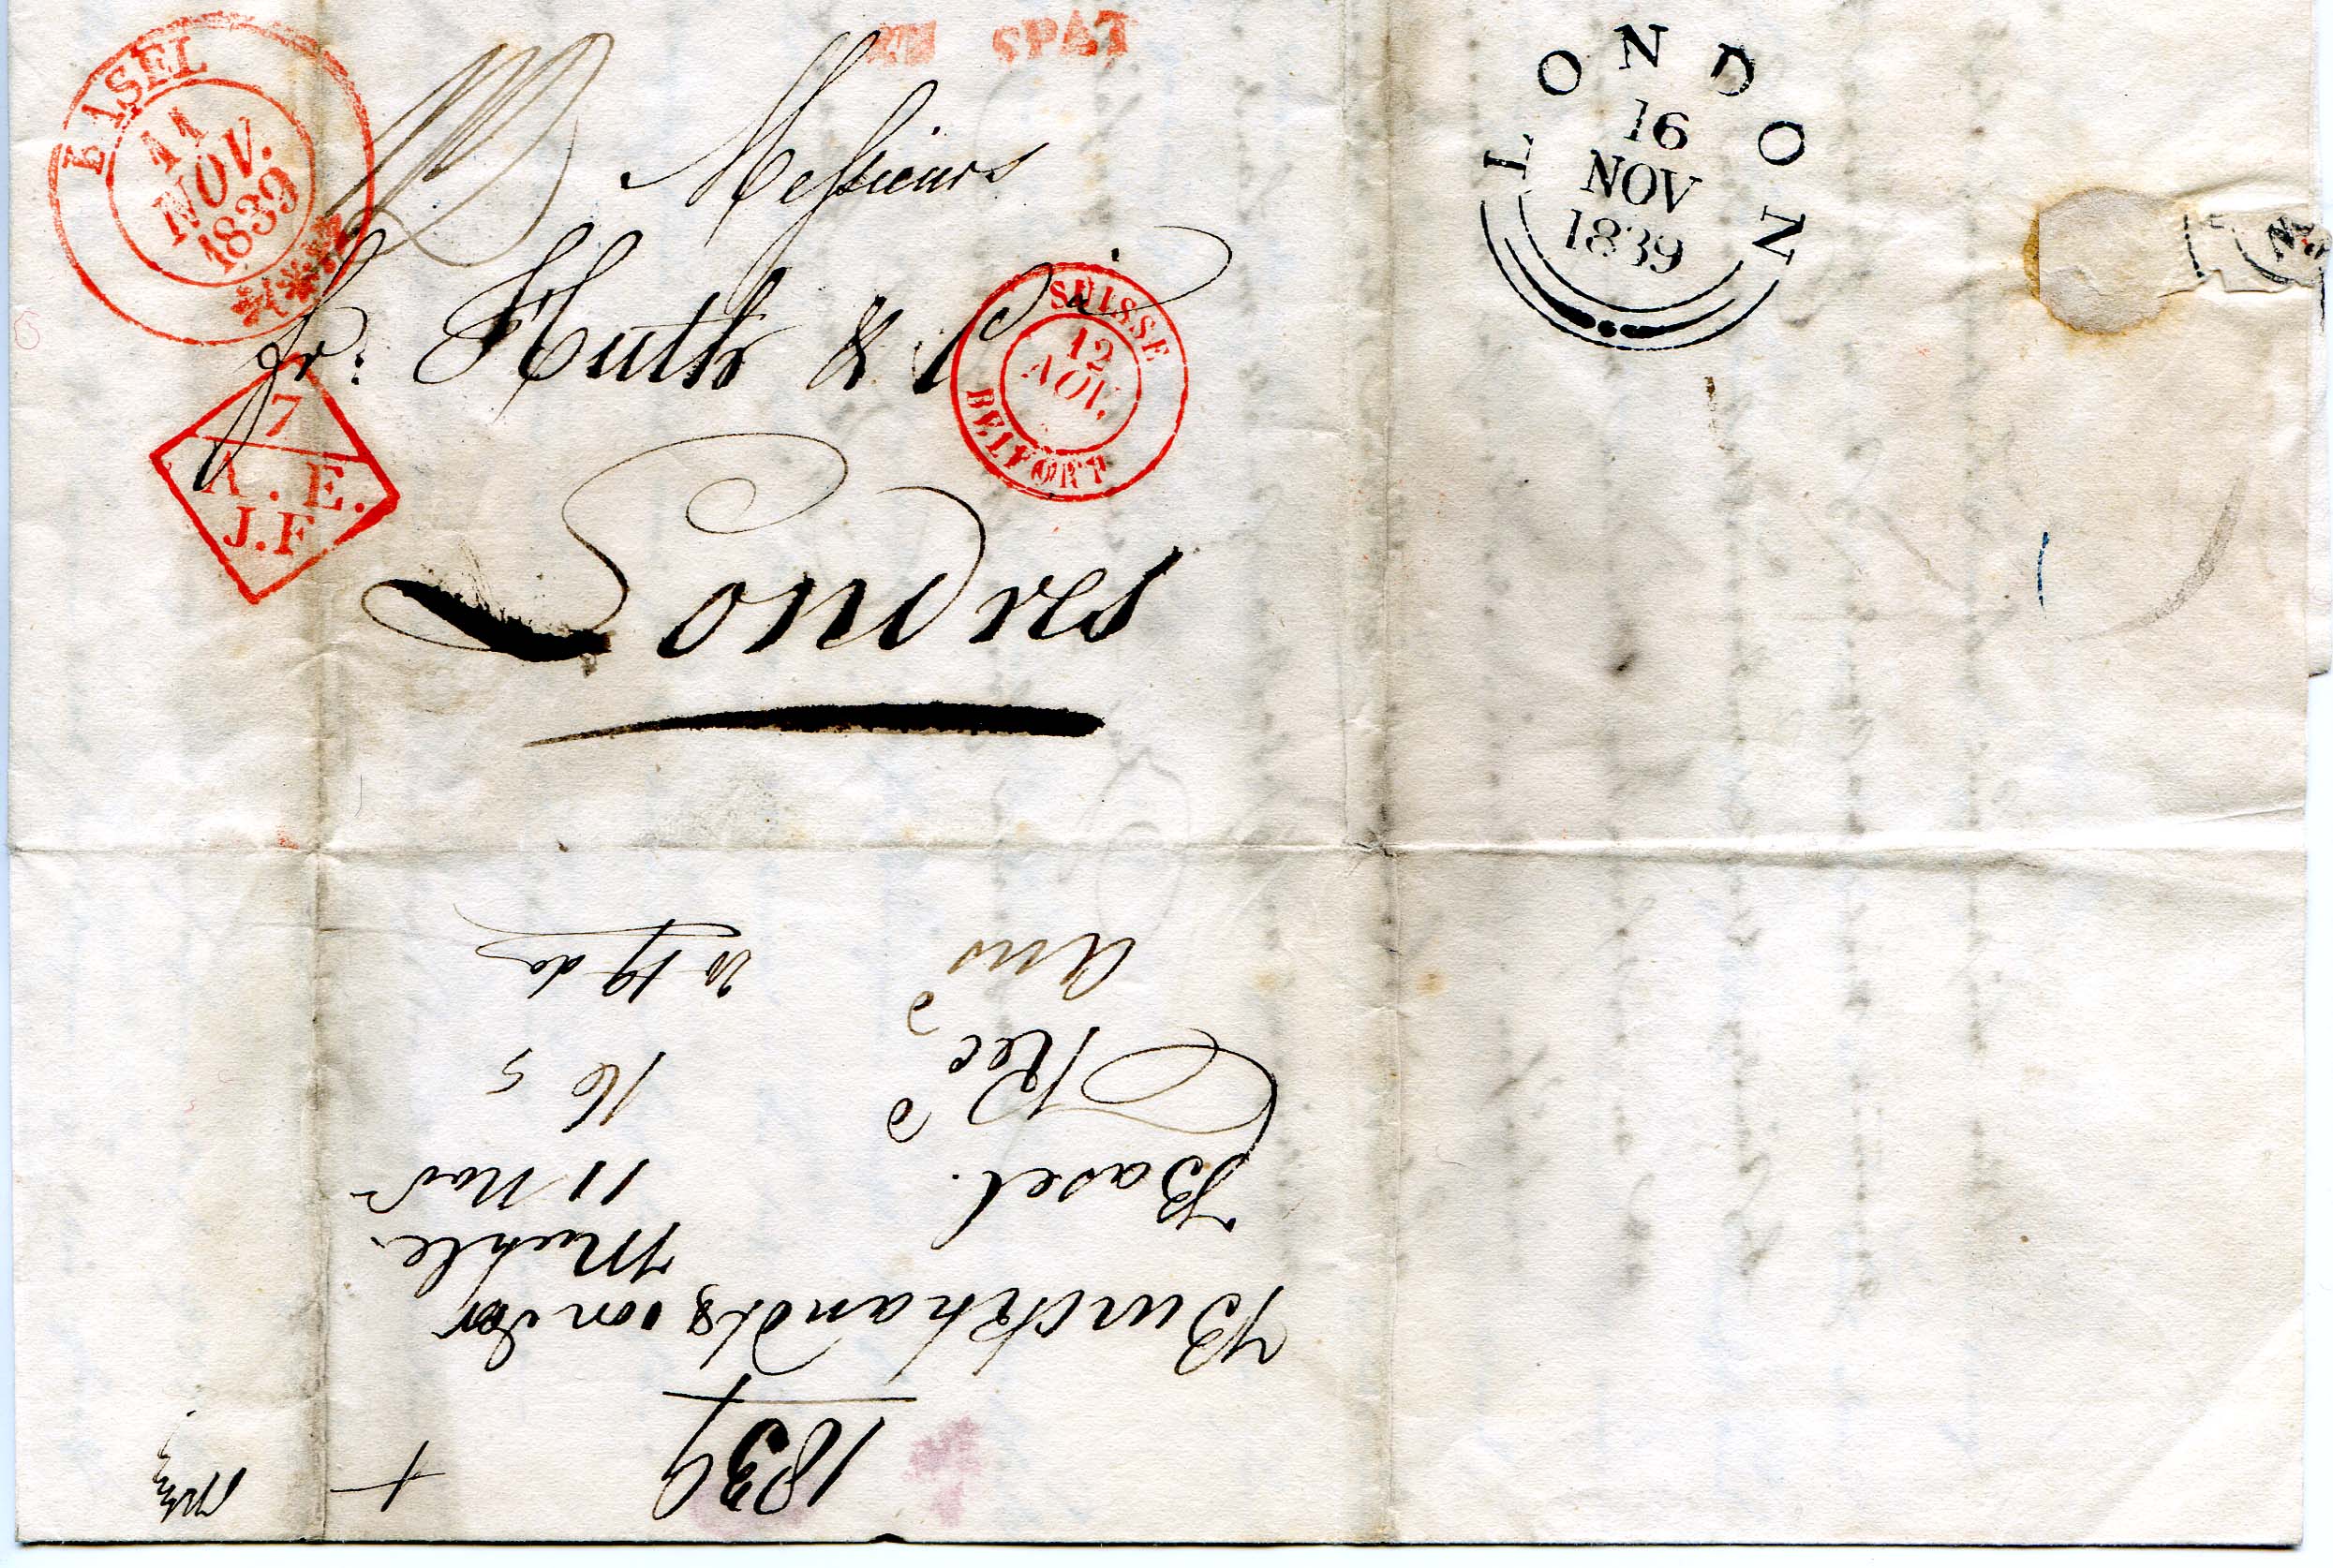 SPÄT
BASEL
11
NOV.
1839
Messieurs
fr: Huth & Cie
Londres
SUISSE
12
NOV.
BELFORT
7
A. E.
J.F
LONDON
16
NOV
1839
1839
Burckhardts von der
Muehle
Basel. 11 Nov
Recd 16 5
Ans 19 do